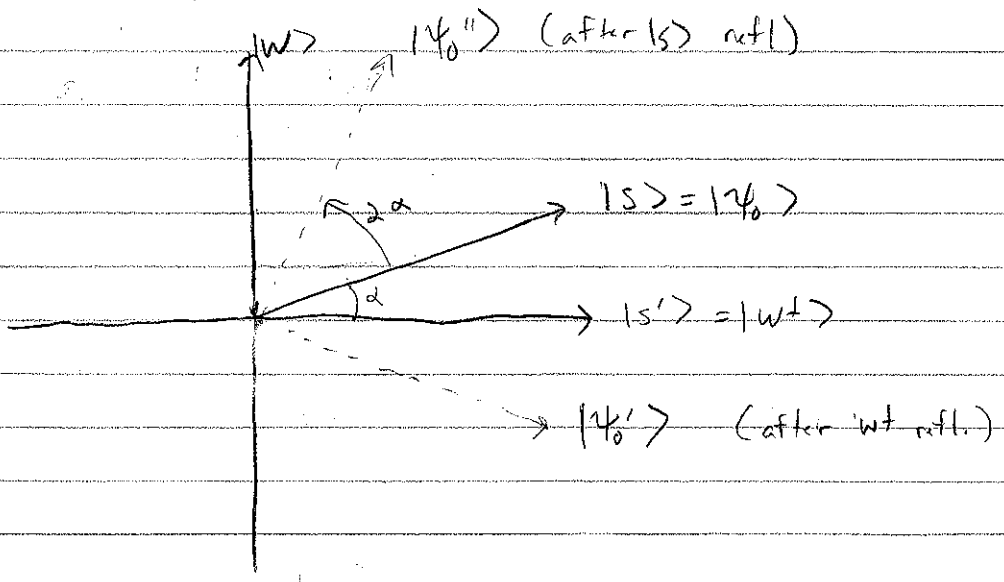 |w> |ψ₀''> (after |s> refl)
2α
|s> = |ψ₀>
α
|s'> = |w⊥>
|ψ₀'> (after w⊥ refl.)